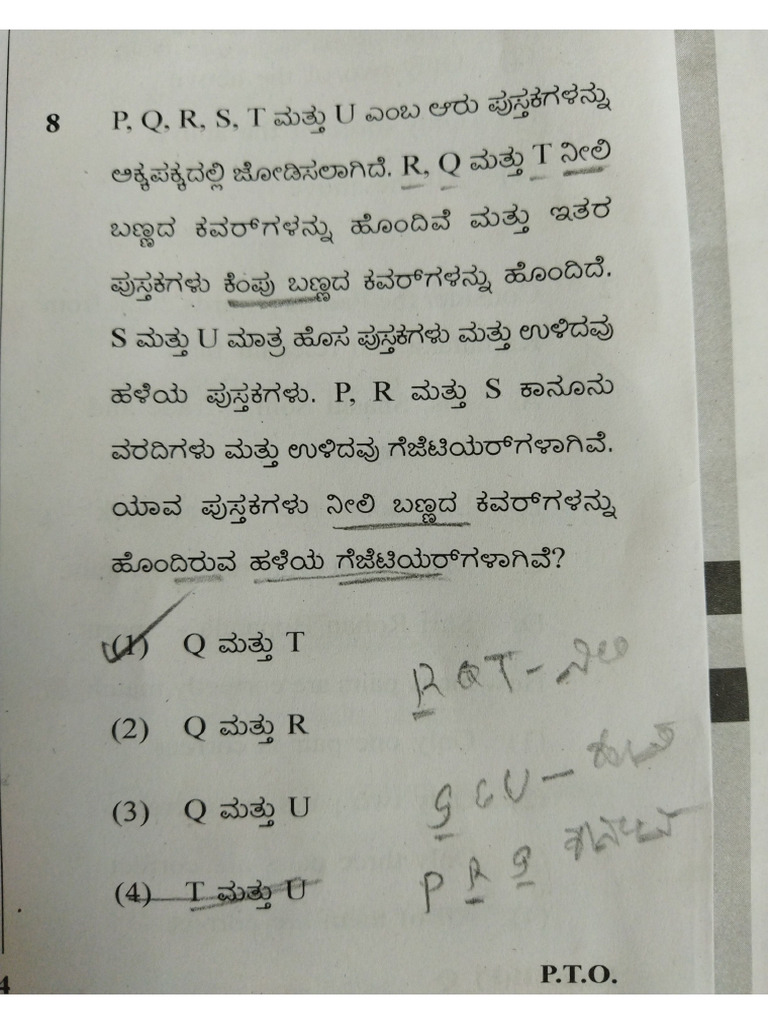 8 P, Q, R, S, T ಮತ್ತು U ಎಂಬ ಆರು ಪುಸ್ತಕಗಳನ್ನು
ಅಕ್ಕಪಕ್ಕದಲ್ಲಿ ಜೋಡಿಸಲಾಗಿದೆ. R, Q ಮತ್ತು T ನೀಲಿ
ಬಣ್ಣದ ಕವರ್‌ಗಳನ್ನು ಹೊಂದಿವೆ ಮತ್ತು ಇತರ
ಪುಸ್ತಕಗಳು ಕೆಂಪು ಬಣ್ಣದ ಕವರ್‌ಗಳನ್ನು ಹೊಂದಿದೆ.
S ಮತ್ತು U ಮಾತ್ರ ಹೊಸ ಪುಸ್ತಕಗಳು ಮತ್ತು ಉಳಿದವು
ಹಳೆಯ ಪುಸ್ತಕಗಳು. P, R ಮತ್ತು S ಕಾನೂನು
ವರದಿಗಳು ಮತ್ತು ಉಳಿದವು ಗೆಜೆಟಿಯರ್‌ಗಳಾಗಿವೆ.
ಯಾವ ಪುಸ್ತಕಗಳು ನೀಲಿ ಬಣ್ಣದ ಕವರ್‌ಗಳನ್ನು
ಹೊಂದಿರುವ ಹಳೆಯ ಗೆಜೆಟಿಯರ್‌ಗಳಾಗಿವೆ?
(1) Q ಮತ್ತು T
(2) Q ಮತ್ತು R
(3) Q ಮತ್ತು U
(4) T ಮತ್ತು U
R Q T - ನೀಲಿ
S & U -
P R S
P.T.O.
4